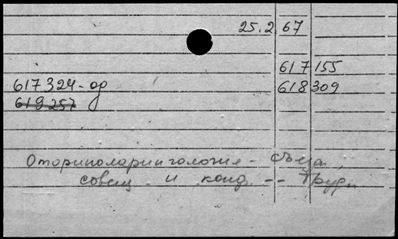 25.2.67
617155
617324-од 618309
619257
Оториноларингология - съезд,
совещ. и конф. -- Труды